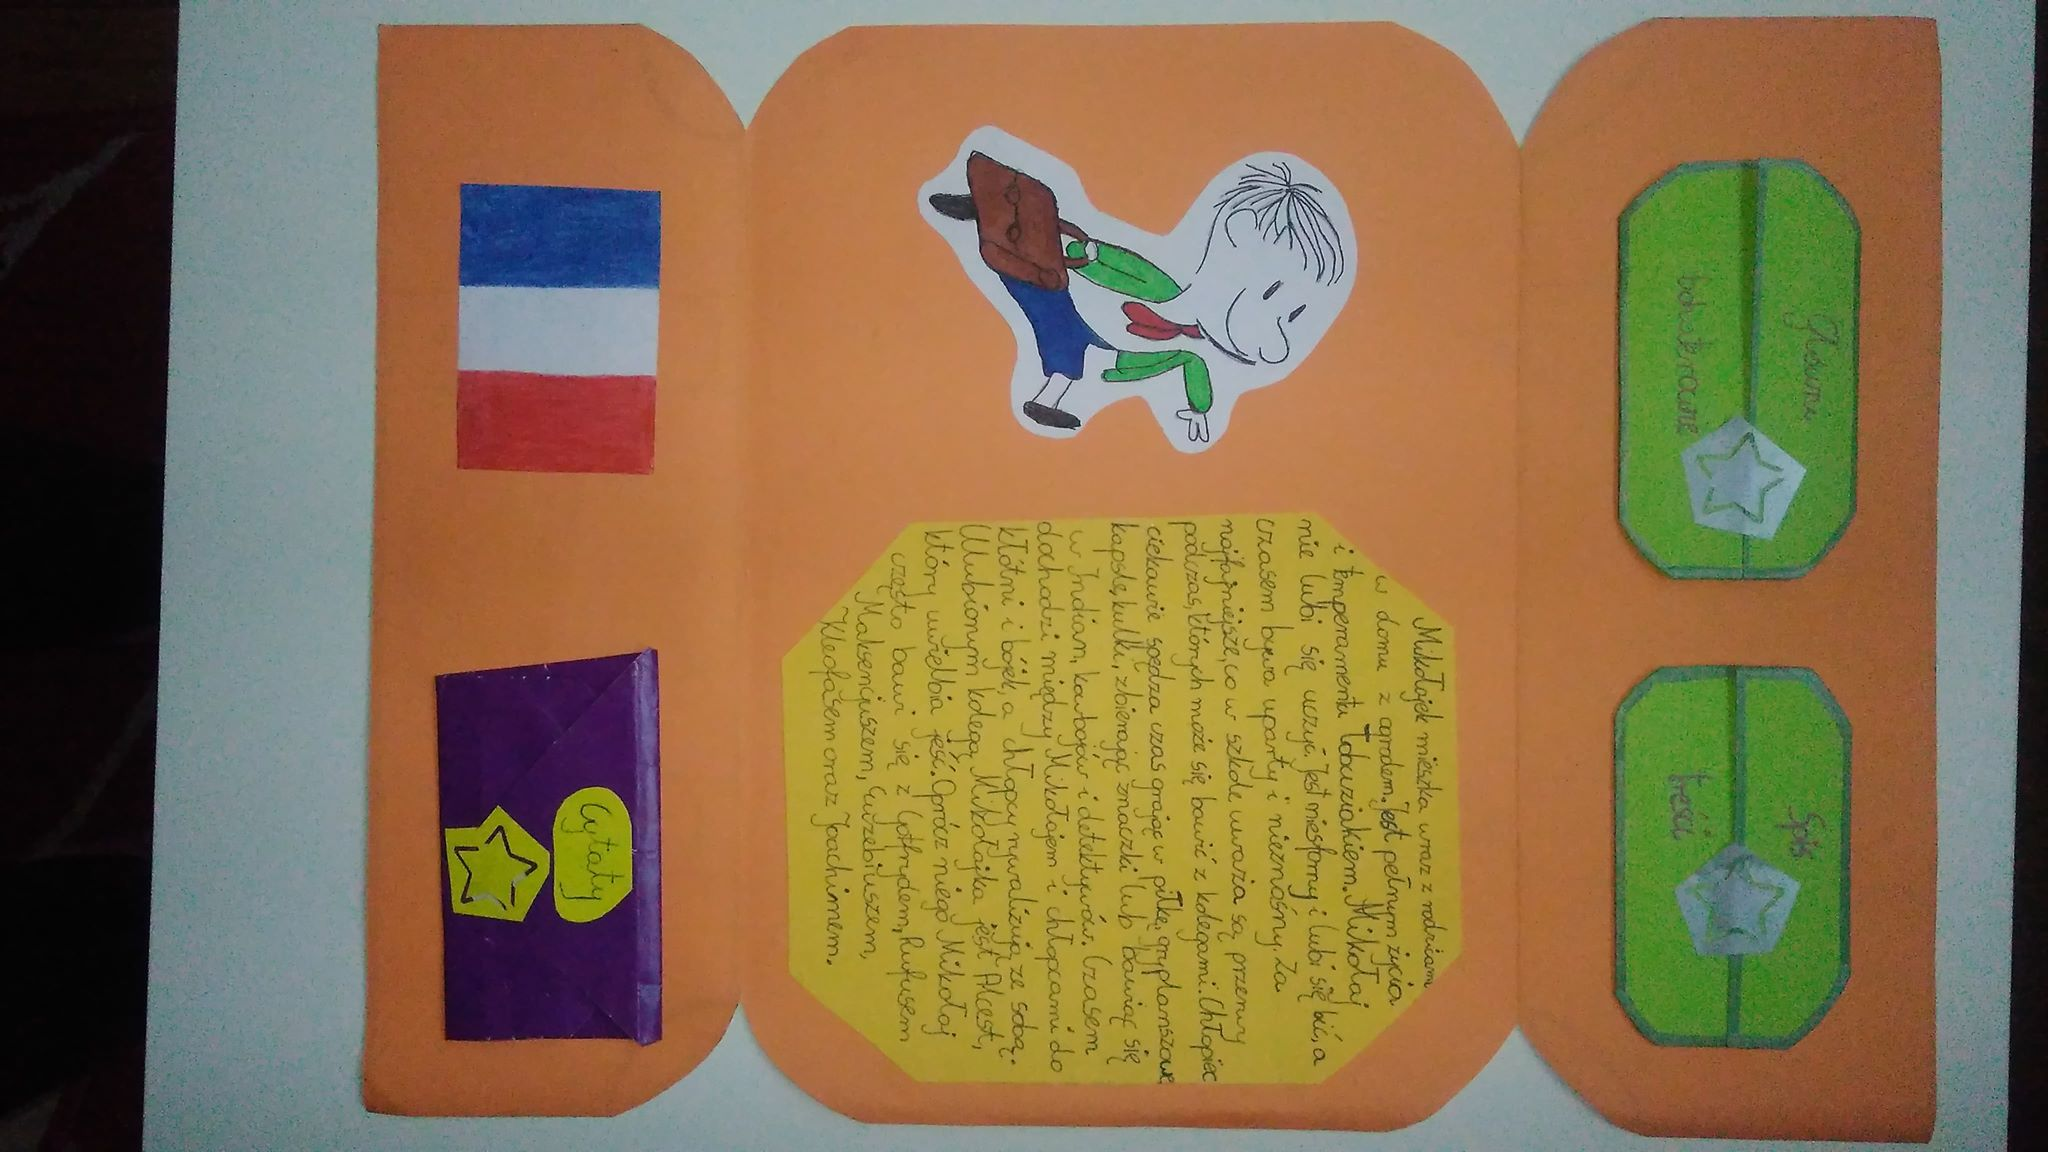 Główni
bohaterowie
Spis
treści
Mikołajek mieszka wraz z rodzicami
w domu z ogrodem. Jest pełnym życia
i temperamentu łobuziakiem. Mikołaj
nie lubi się uczyć. Jest niesforny i lubi się bić, a
czasem bywa uparty i nieznośny. Za
najfajniejsze, co w szkole uważa są przerwy
podczas, których może się bawić z kolegami. Chłopiec
ciekawie spędza czas grając w piłkę, gry planszowe,
kapsle, kulki, zbierając znaczki lub bawiąc się
w Indian, kowbojów i detektywów. Czasem
dochodzi między Mikołajem i chłopcami do
kłótni i bójek, a chłopcy rywalizują ze sobą.
Ulubionym kolegą Mikołajka jest Alcest,
który uwielbia jeść. Oprócz niego Mikołaj
często bawi się z Gotfrydem, Rufusem
Maksencjuszem, Euzebiuszem,
Kleofasem oraz Joachimem.
Cytaty